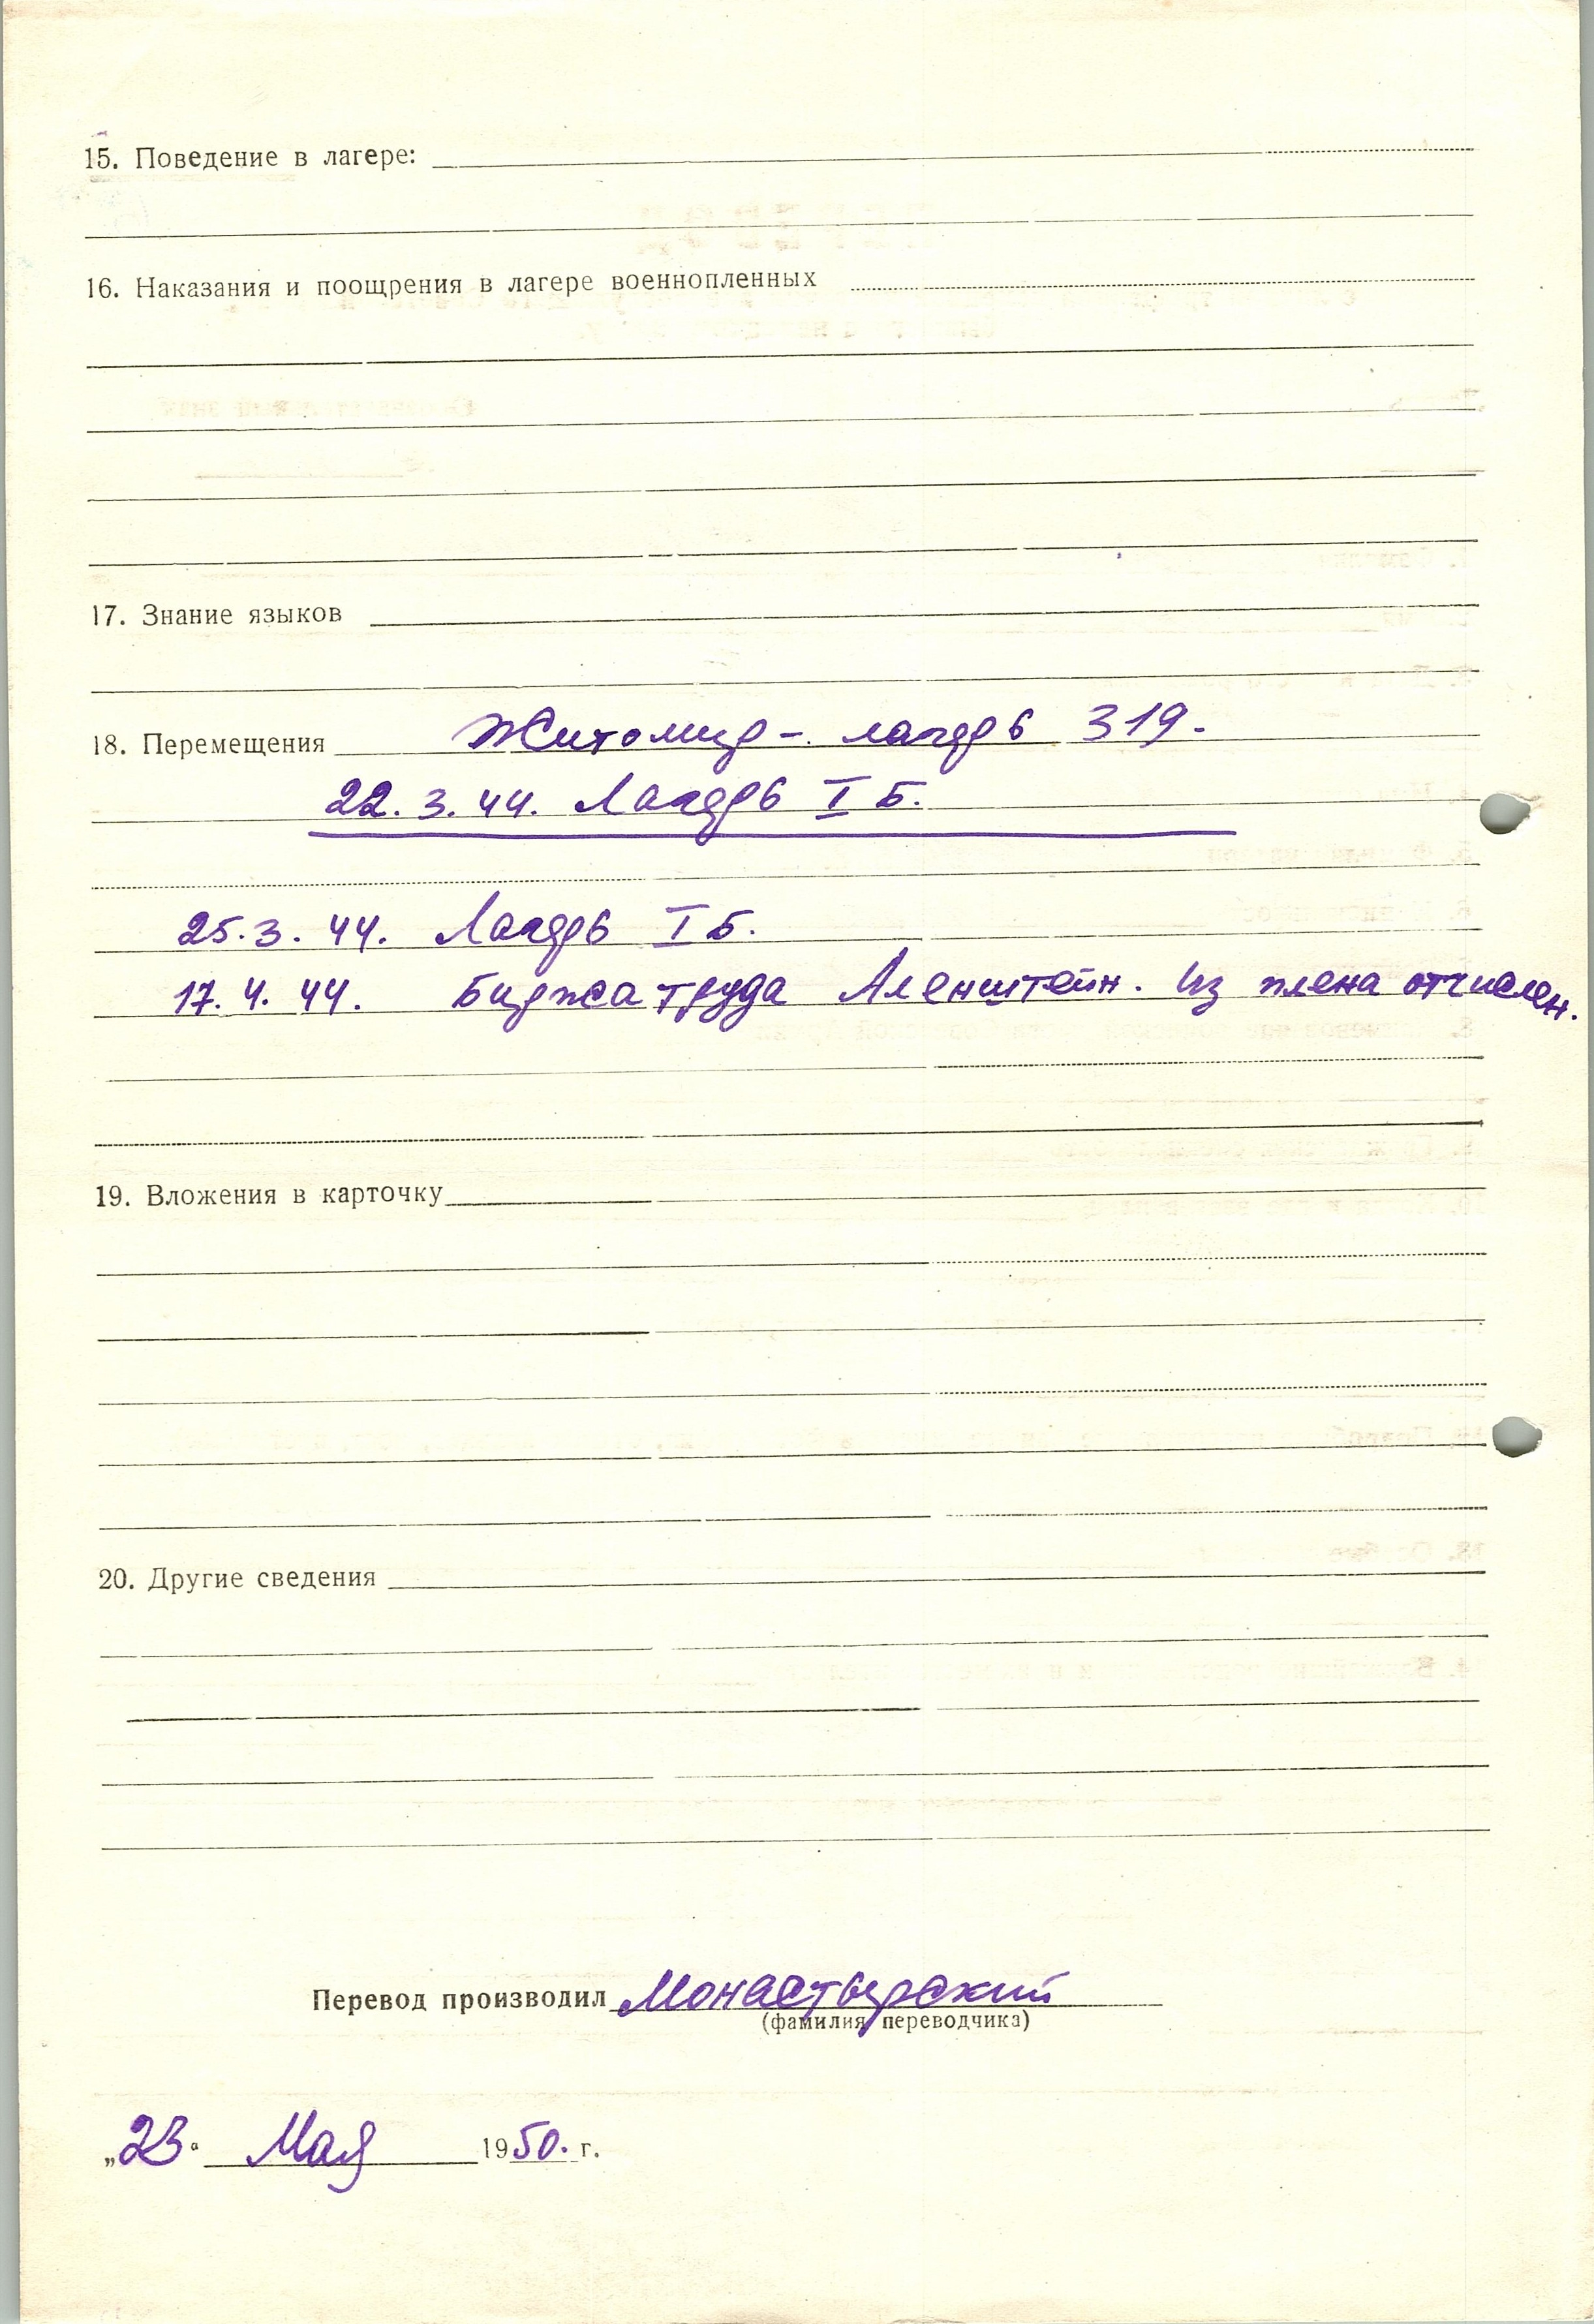 15. Поведение в лагере:
16. Наказания и поощрения в лагере военнопленных
17. Знание языков
18. Перемещения Житомир - лагерь 319.
22. 3. 44. Лагерь I Б.
25. 3. 44. Лагерь I Б.
17. 4. 44. Биржа труда Аленштейн. Из плена отчислен.
19. Вложения в карточку
20. Другие сведения
Перевод производил Монастырский
(фамилия переводчика)
„23“ Мая 1950. г.